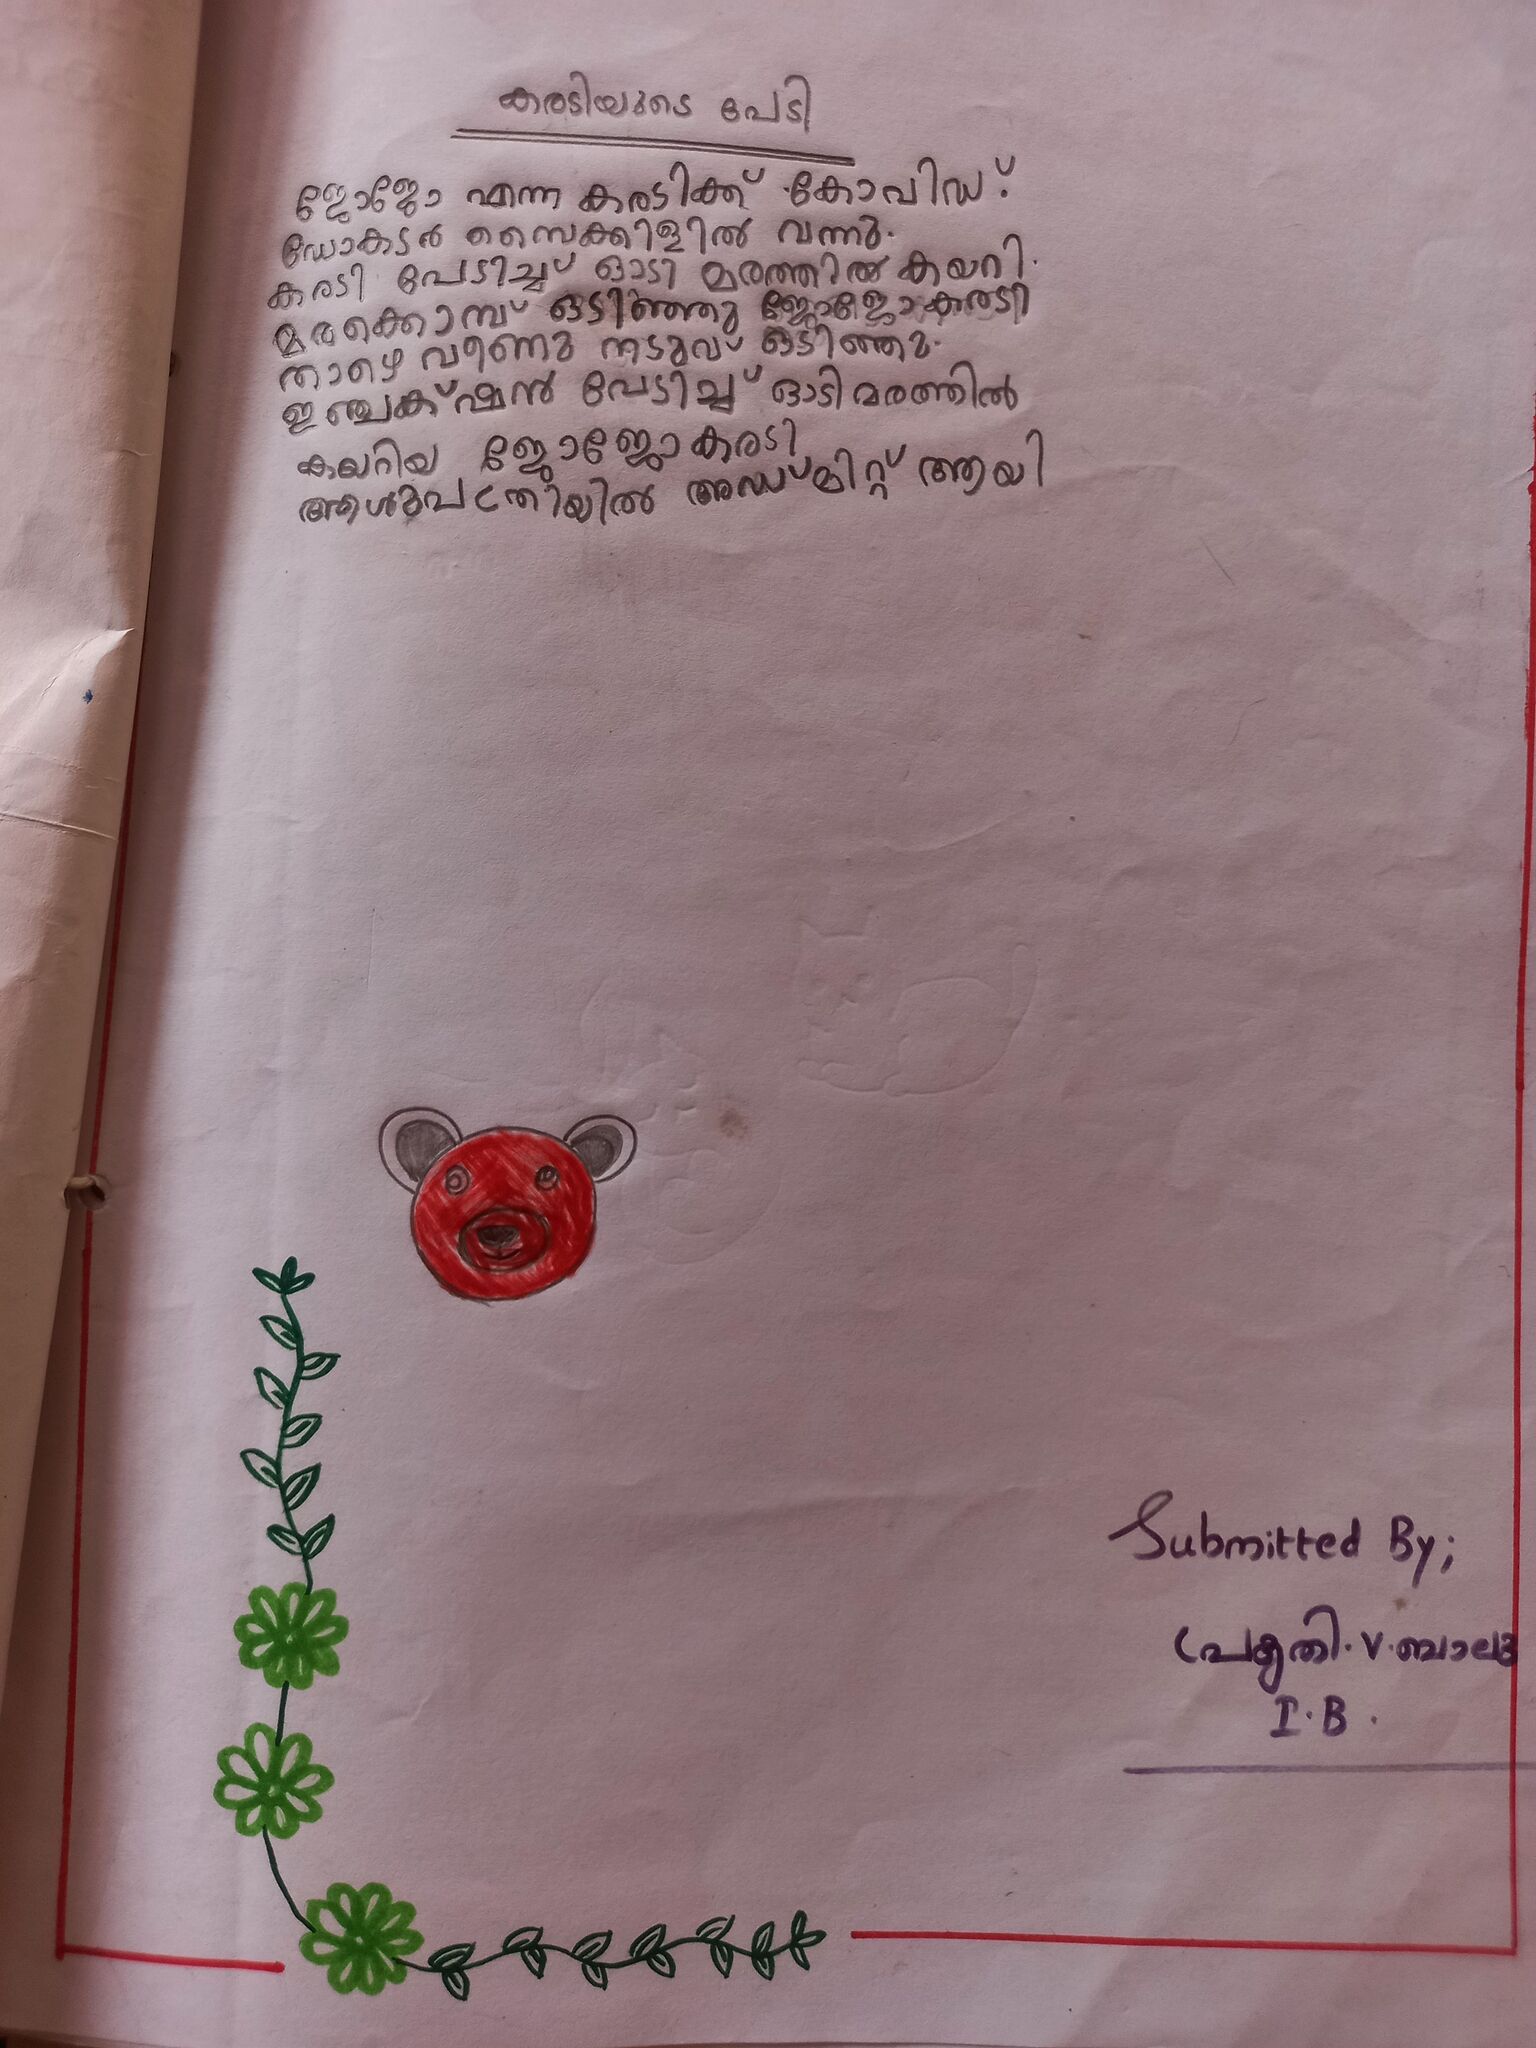 കരടിയുടെ പേടി
ജോജോ എന്ന കരടിക്ക് കോവിഡ്.
ഡോകടർ സൈക്കിളിൽ വന്നു.
കരടി പേടിച്ച് ഓടി മരത്തിൽ കയറി.
മരക്കൊമ്പ് ഒടിഞ്ഞു ജോജോകരടി
താഴെ വീണു നടുവ് ഒടിഞ്ഞു.
ഇഞ്ചക്ഷൻ പേടിച്ച് ഓടിമരത്തിൽ
കയറിയ ജോജോകരടി
ആശുപത്രിയിൽ അഡ്മിറ്റ് ആയി
Submitted By;
പ്രകൃതി. V. ബാലു
I. B.